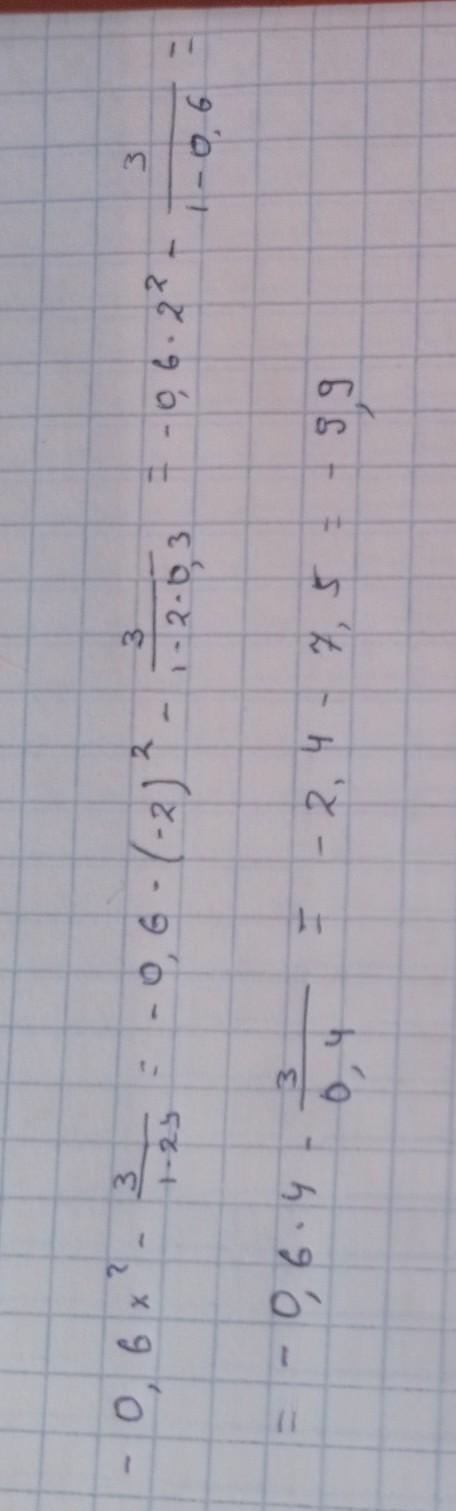 - 0,6x² - 3/(1-2y) = - 0,6·(-2)² - 3/(1-2·0,3) = -0,6·2² - 3/(1-0,6) =
= - 0,6·4 - 3/0,4 = - 2,4 - 7,5 = - 9,9